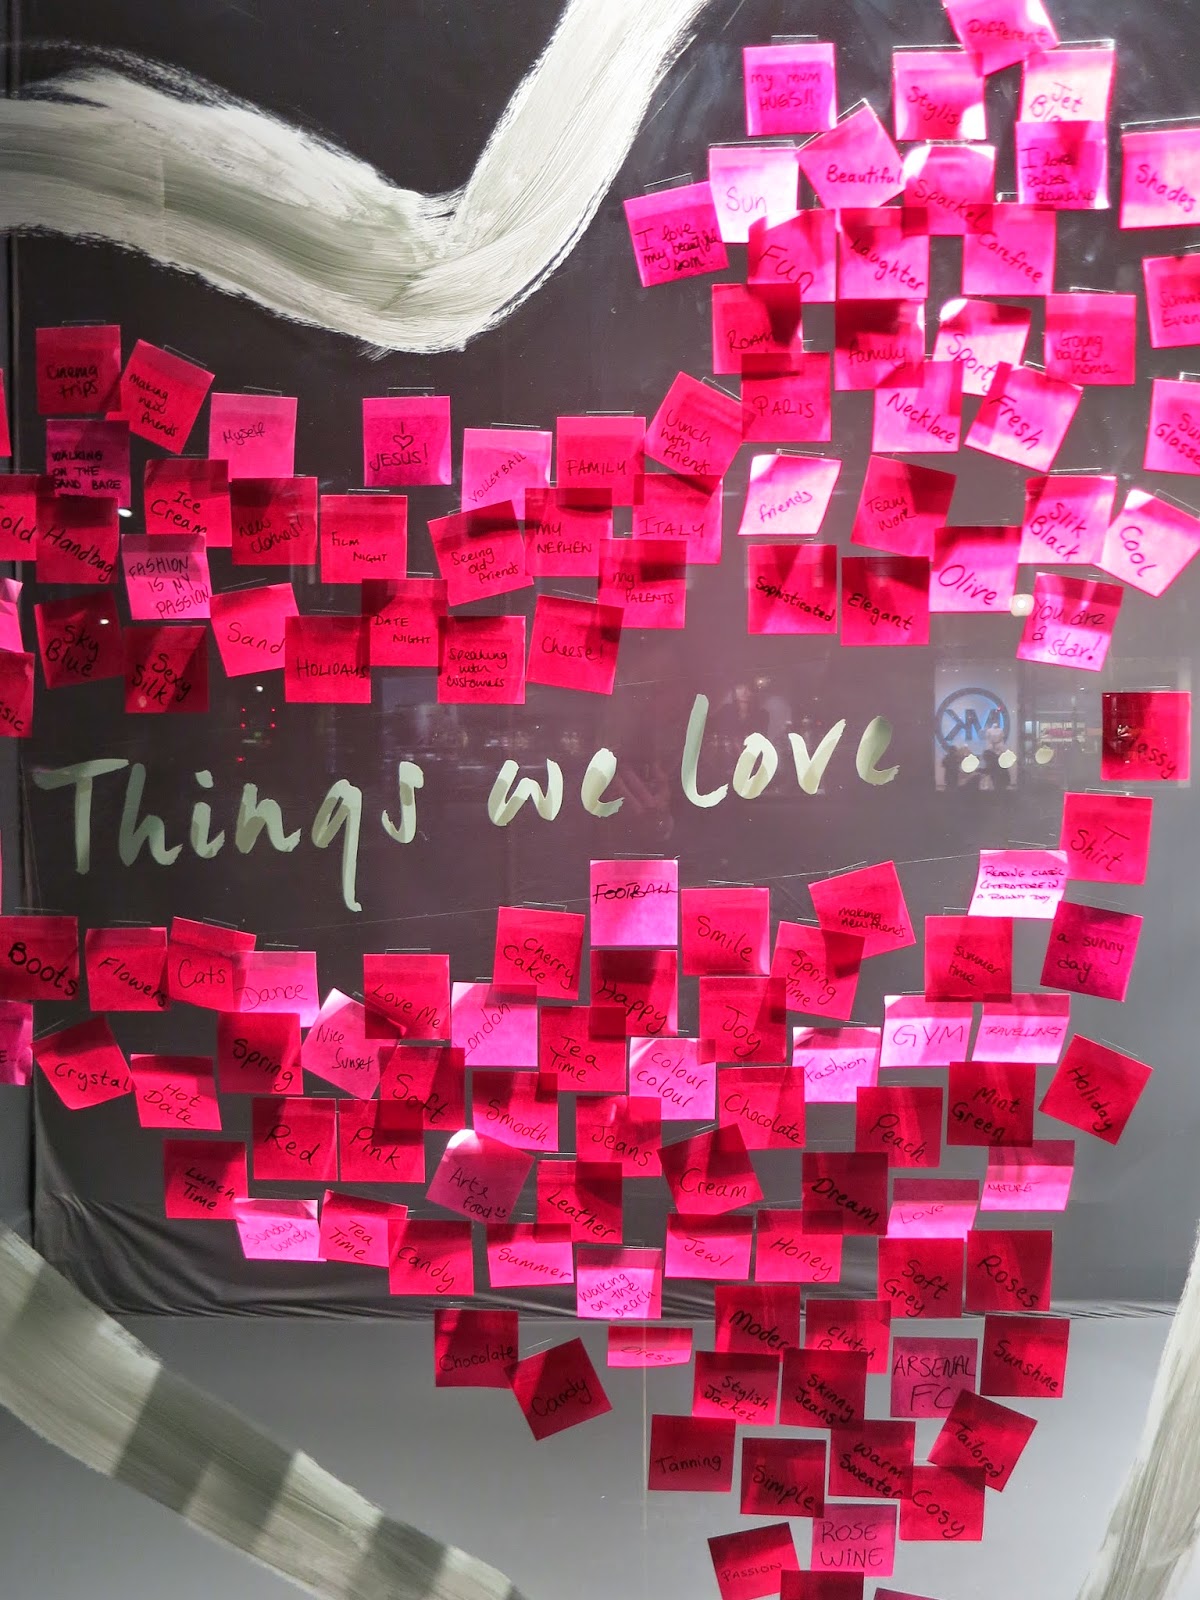 Different
my mum
HUGS!!
Stylis
Jet
I love
Shades
Beautiful
Sun
Sparkel
I love
my beautiful
Fun
Laughter
Carefree
Family
Sporty
Going
back
home
Cinema
trips
making
new
friends
Myself
I
♡
JESUS!
VOLLEYBALL
FAMILY
Lunch
with
friends
PARIS
Necklace
Fresh
Sun
Glasses
WALKING
ON THE
SAND BARE
Ice
Cream
new
clothes!
FILM
NIGHT
Seeing
Old friends
MY
NEPHEW
ITALY
friends
Team
work
Slik
Black
Cool
Handbag
FASHION
IS MY
PASSION
MY
PARENTS
Sophisticated
Elegant
Olive
You are
a star!
Sky
Blue
Sexy
Silk
Sand
HOLIDAYS
DATE
NIGHT
Speaking
with
customers
Cheese!
MK
Things we Love ...
T
Shirt
READING CLASSIC
LITERATURE IN
A RAINY DAY
FOOTBALL
Smile
making
new friends
Summer
time
a sunny
day
Boots
Flowers
Cats
Dance
Love Me
Cherry
Cake
Happy
Spring
Time
Joy
London
Tea
Time
GYM
TRAVELLING
Fashion
Crystal
Hot
Date
Spring
Nice
Sunset
Soft
Smooth
colour
colour
Chocolate
Jeans
Peach
Mint
Green
Holiday
Red
Pink
Lunch
Time
Arts
food
Leather
Cream
Dream
Love
NATURE
Sunday
lunch
Tea
Time
Candy
Summer
Walking
on the
beach
Jewl
Honey
Soft
Grey
Roses
Chocolate
Candy
Dress
Moder
Clutch
Stylish
Jacket
Skinny
Jeans
ARSENAL
F.C
Sunshine
Tanning
Simple
Warm
Sweater
Tailored
Cosy
ROSE
WINE
PASSION